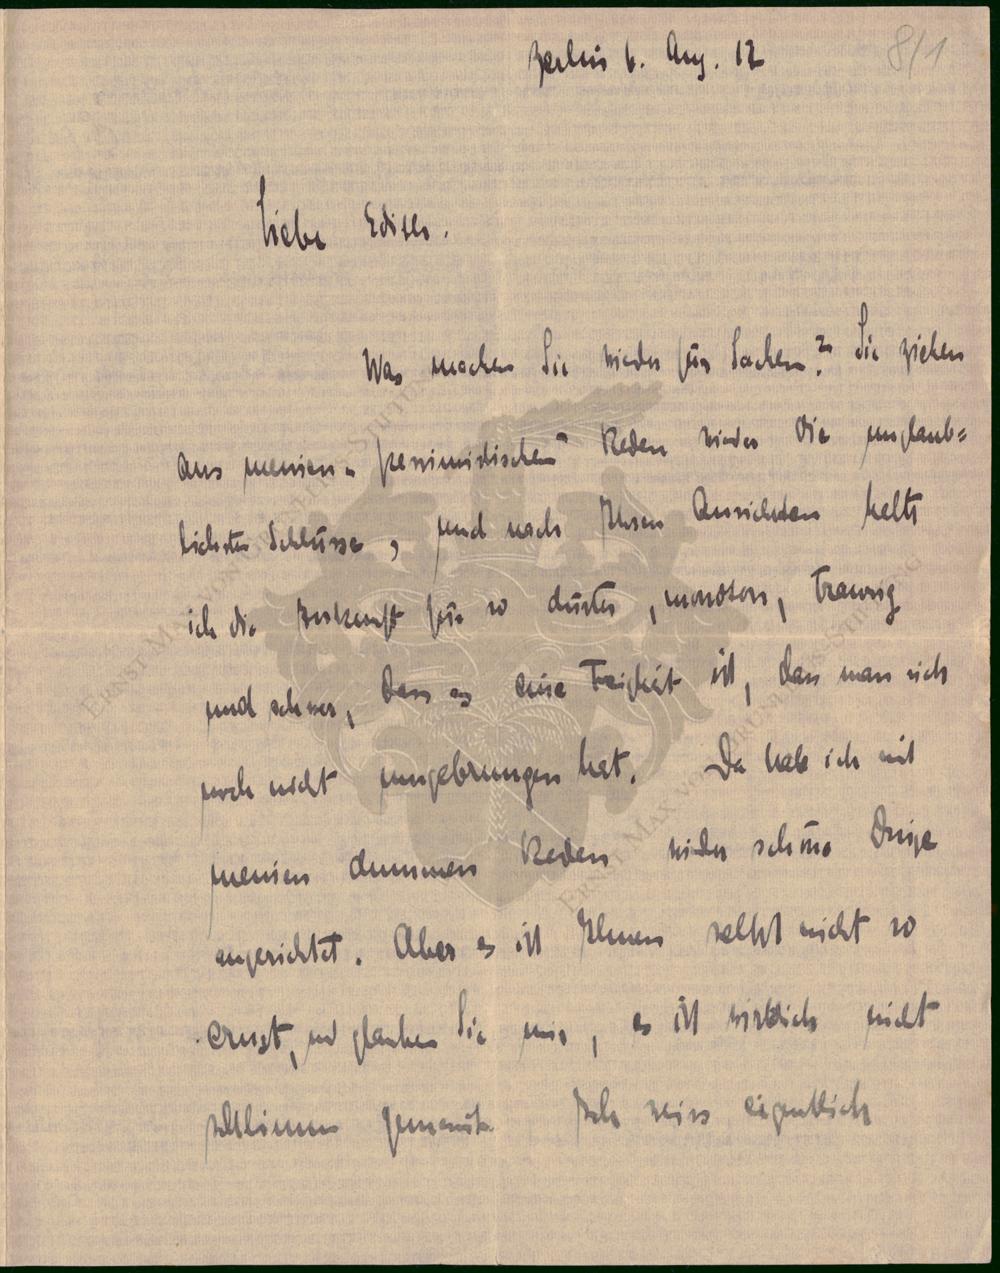 8/1
Berlin 6. Aug. 12
Liebe Edith.
Was machen Sie wieder für Sachen? Sie ziehen
aus meinen „pessimistischen“ Reden wieder die unglaub=
lichsten Schlüsse, und nach Ihren Ansichten hielte
ich die Zukunft für so düster, monoton, traurig
und schwer, dass es eine Feigheit ist, dass man sich
noch nicht umgebrungen hat. Da hab ich mit
meinen dummen Reden wieder schöne Dinge
angerichtet. Aber es ist Ihnen selbst nicht so
ernst, und glauben Sie mir, es ist wirklich nicht
schlimm gemeint. Ich weiss eigentlich
ERNST MAX VON GRUNELIUS-STIFTUNG
ERNST MAX VON GRUNELIUS-STIFTUNG